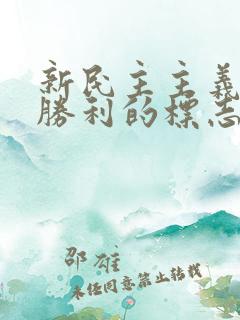 新民主主義
勝利的標志
邵雄
未经同意禁止转载